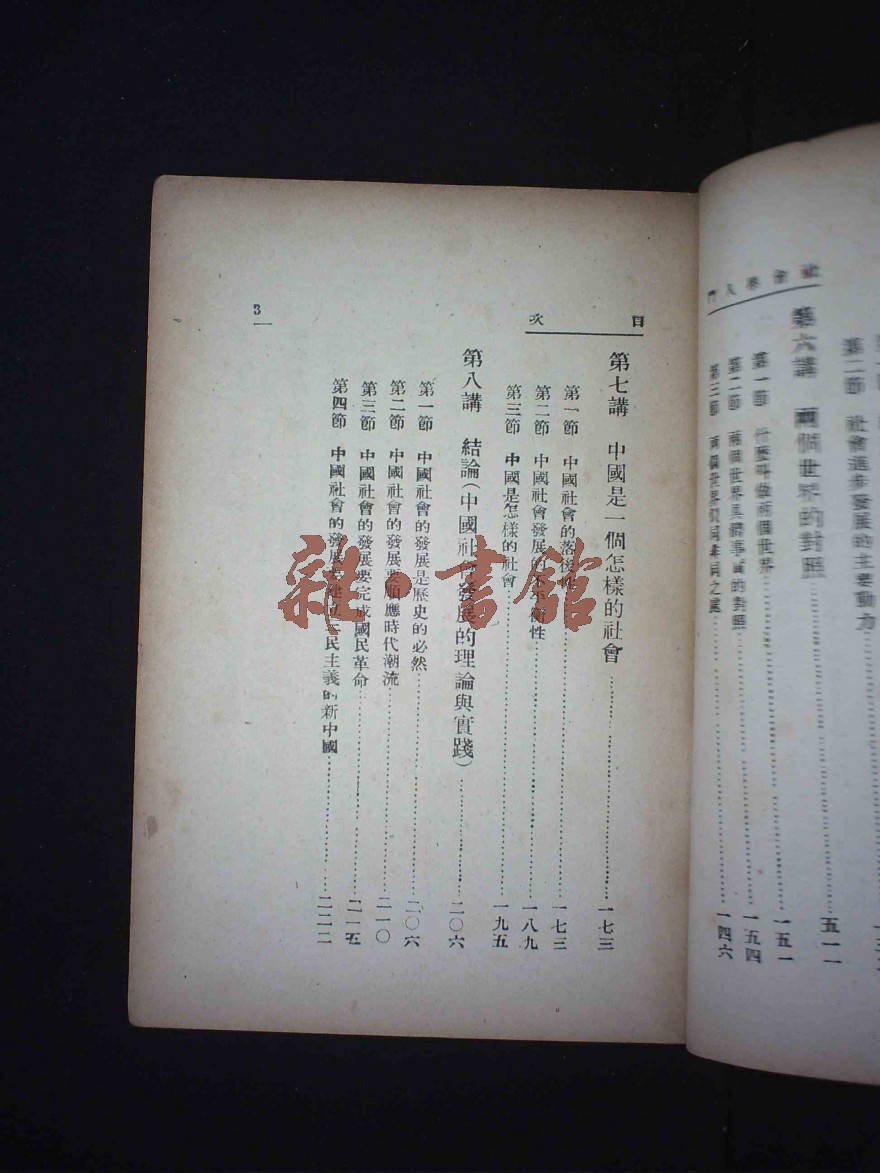 社會學入門
第二節 社會進步發展的主要動力
第六講 兩個世界的對照
第一節 什麼叫做兩個世界 一五一
第二節 兩個世界具體事實的對照 一五四
第三節 兩個世界 同 之處 一四六
目次
第七講 中國是一個怎樣的社會 一七三
第一節 中國社會的落後性 一七三
第二節 中國社會發展的不平衡性 一八九
第三節 中國是怎樣的社會 一九五
第八講 結論(中國社會發展的理論與實踐) 二〇六
第一節 中國社會的發展是歷史的必然 二〇六
第二節 中國社會的發展要順應時代潮流 二一〇
第三節 中國社會的發展要完成國民革命 二一五
第四節 中國社會的發展要建立三民主義的新中國 二二二
3
雜·書館